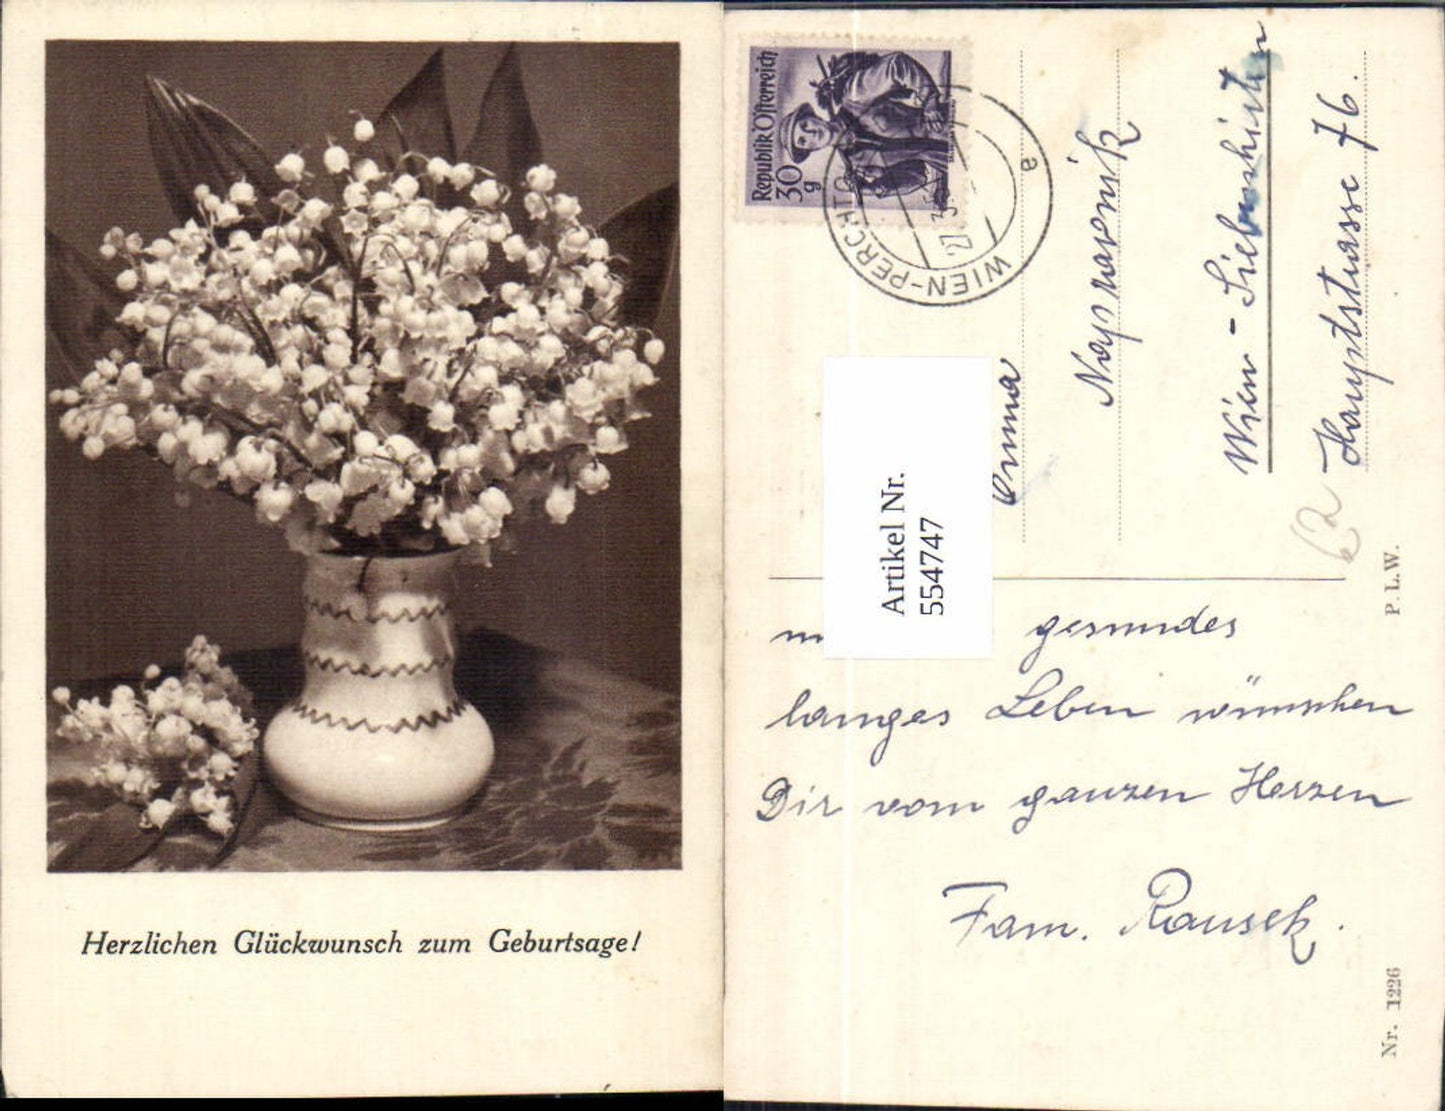 Herzlichen Glückwunsch zum Geburtsage!
Republik Österreich
30
g
WIEN-PERCHTO
a
Artikel Nr.
554747
Anna
Wien - Siebenhirten
Hauptstrasse 76.
62
P. L. W.
gesundes
langes Leben wünschen
Dir vom ganzen Herzen
Fam. Rausek.
Nr. 1226